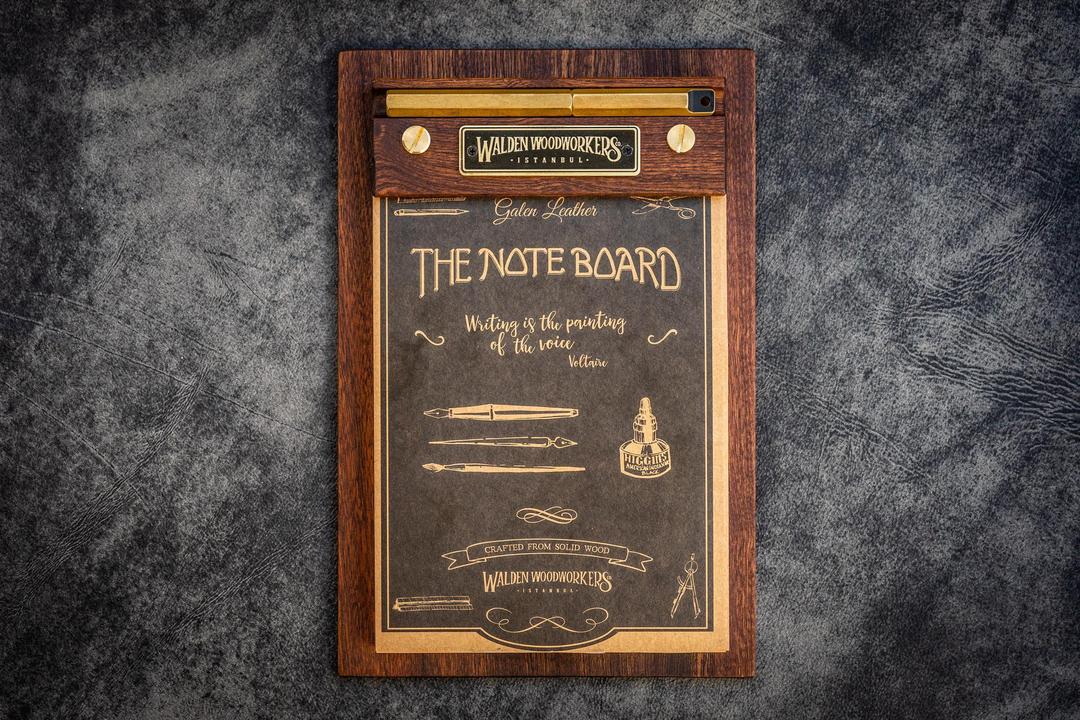 WALDEN WOODWORKERS
· ISTANBUL ·
Galen Leather
THE NOTE BOARD
Writing is the painting
of the voice
Voltaire
HIGGINS
AMERICAN INDIA INK
BLACK
CRAFTED FROM SOLID WOOD
WALDEN WOODWORKERS
· ISTANBUL ·